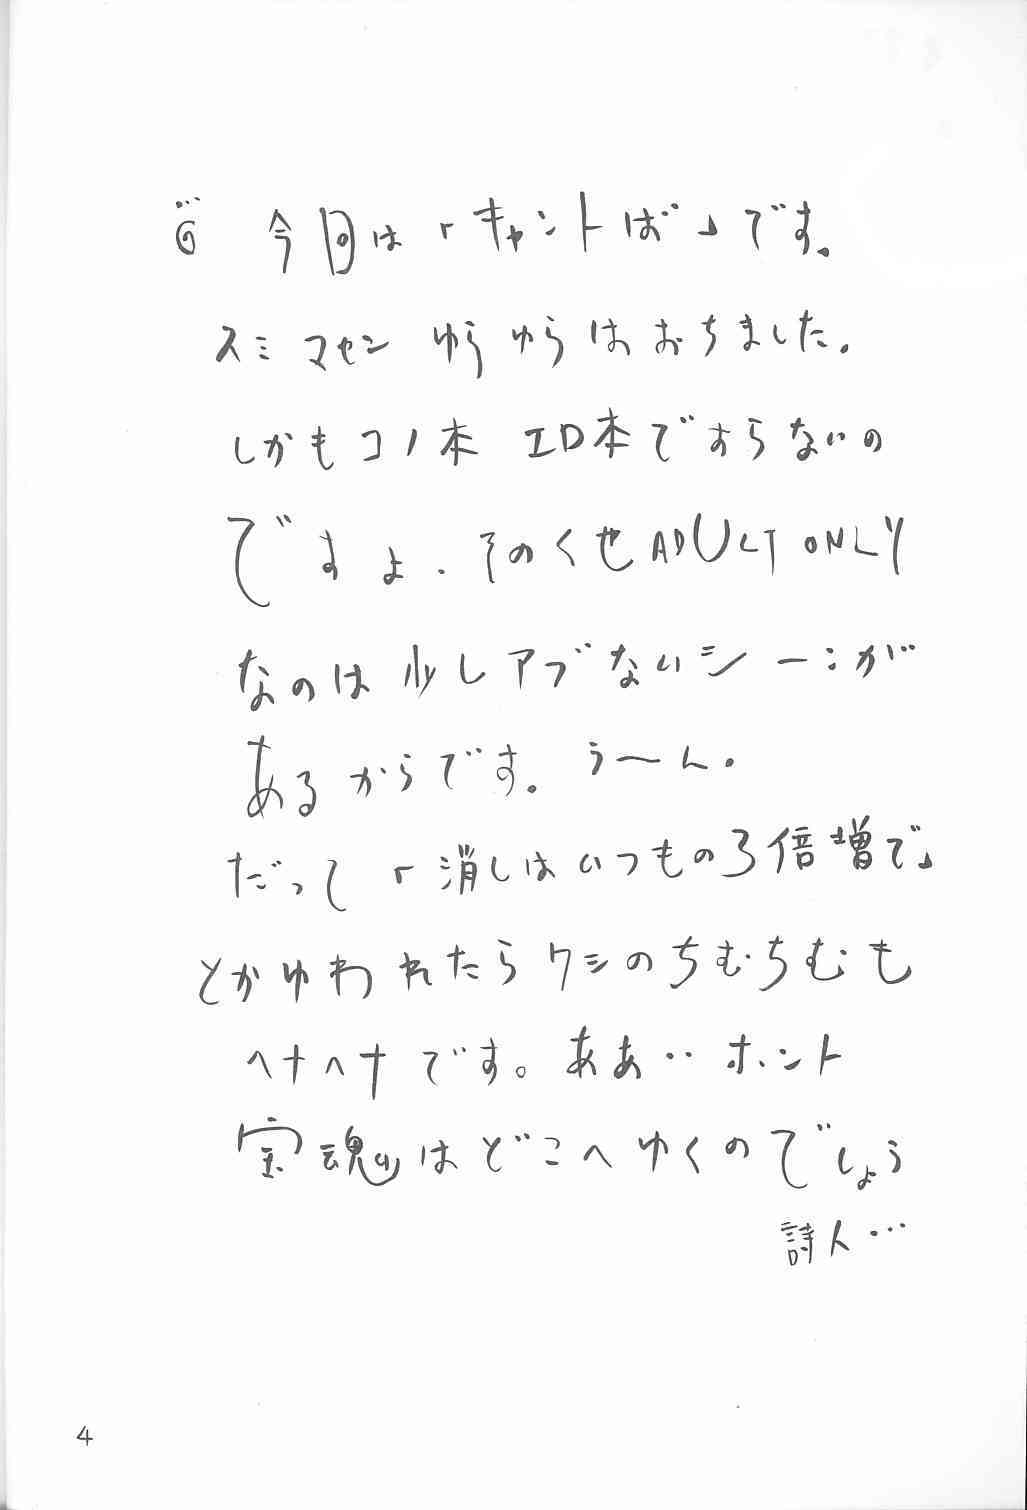 今回は「キャントば」です。
スミマセン ゆらゆらはおちました。
しかもコノ本 エロ本ですらないの
ですよ。そのくせADULT ONLY
なのは少しアブないシーンが
あるからです。うーん。
だって「消しはいつもの3倍増で」
とかゆわれたらワシのちむちむも
ヘナヘナです。ああ‥ホント
宝魂はどこへゆくのでしょう
詩人…
4